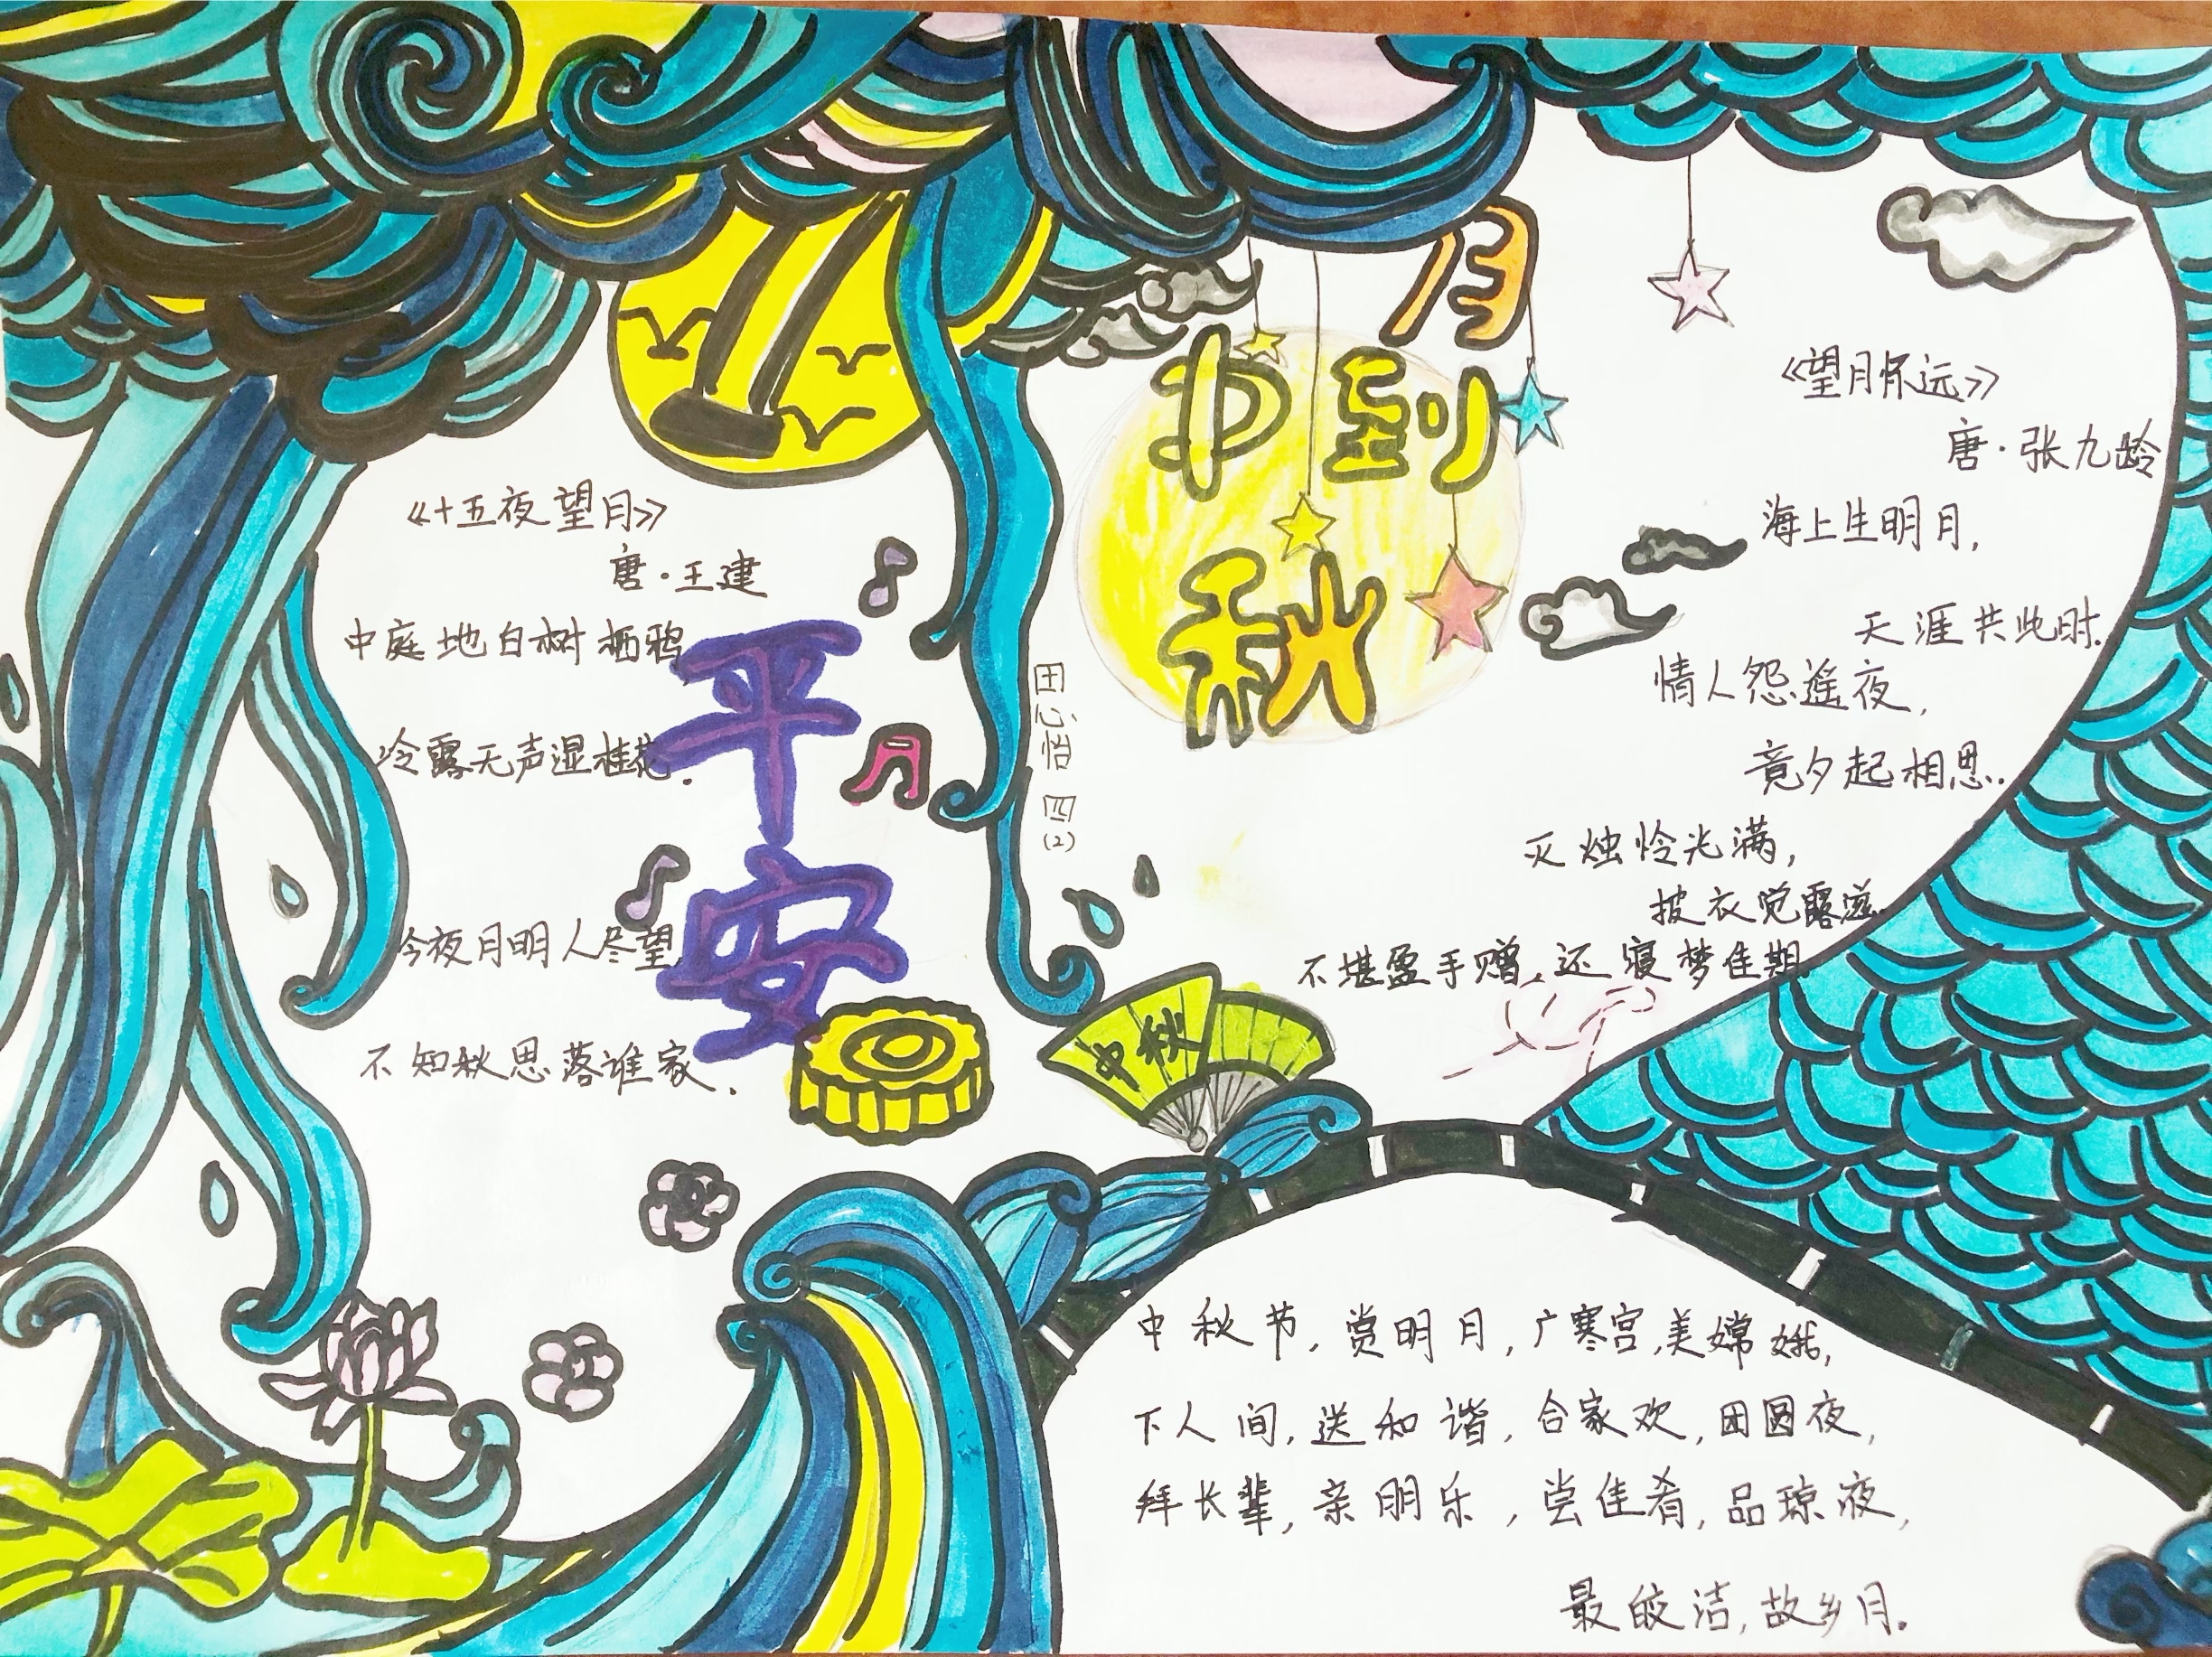 月到
中秋
《十五夜望月》
唐·王建
中庭地白树栖鸦
冷露无声湿桂花.
今夜月明人尽望
不知秋思落谁家.
平安
田心怡 四(2)
《望月怀远》
唐·张九龄
海上生明月,
天涯共此时.
情人怨遥夜,
竟夕起相思.
灭烛怜光满,
披衣觉露滋.
不堪盈手赠,还寝梦佳期.
中秋
中秋节,赏明月,广寒宫,美嫦娥,
下人间,送和谐,合家欢,团圆夜,
拜长辈,亲朋乐,尝佳肴,品琼液,
最皎洁,故乡月.